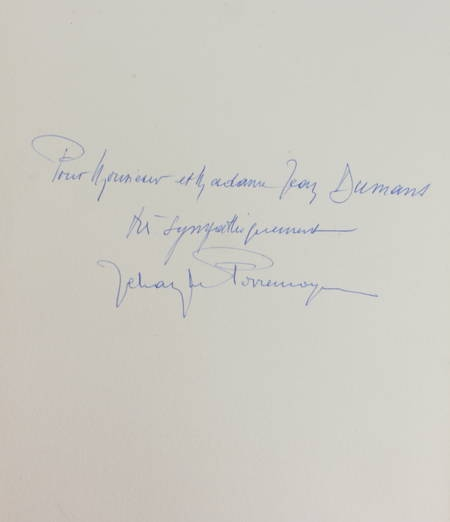 Pour Monsieur et Madame Jean Dumans
très sympathiquement
Jehan de